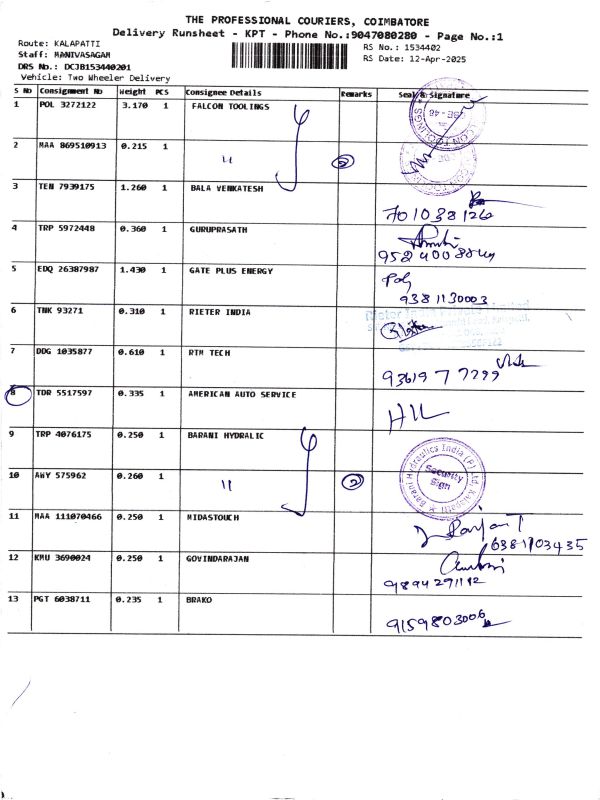 THE PROFESSIONAL COURIERS, COIMBATORE
Delivery Runsheet - KPT - Phone No.:9047080280 - Page No.:1
Route: KALAPATTI
Staff: MANIVASAGAM
DRS No.: DCJB153440201
Vehicle: Two Wheeler Delivery
RS No.: 1534402
RS Date: 12-Apr-2025
S No Consignment No Weight PCS Consignee Details Remarks Seal & Signature
1 POL 3272122 3.170 1 FALCON TOOLINGS
2 MAA 869510913 0.215 1 " 2
3 TEN 7939175 1.260 1 BALA VENKATESH
7010338126
4 TRP 5972448 0.360 1 GURUPRASATH
5 EDQ 26387987 1.430 1 GATE PLUS ENERGY
9381130003
6 TNK 93271 0.310 1 RIETER INDIA
7 DDG 1035877 0.610 1 RTM TECH
9361977299
8 TDR 5517597 0.335 1 AMERICAN AUTO SERVICE
9 TRP 4076175 0.250 1 BARANI HYDRALIC
Barani Hydraulics India (P) Ltd, Kalapatti
Security Sign
10 AWY 575962 0.260 1 " 2
11 MAA 111070466 0.250 1 MIDASTOUCH
6381703435
12 KMU 3690024 0.250 1 GOVINDARAJAN
9894291112
13 PGT 6038711 0.235 1 BRAKO
9159803006